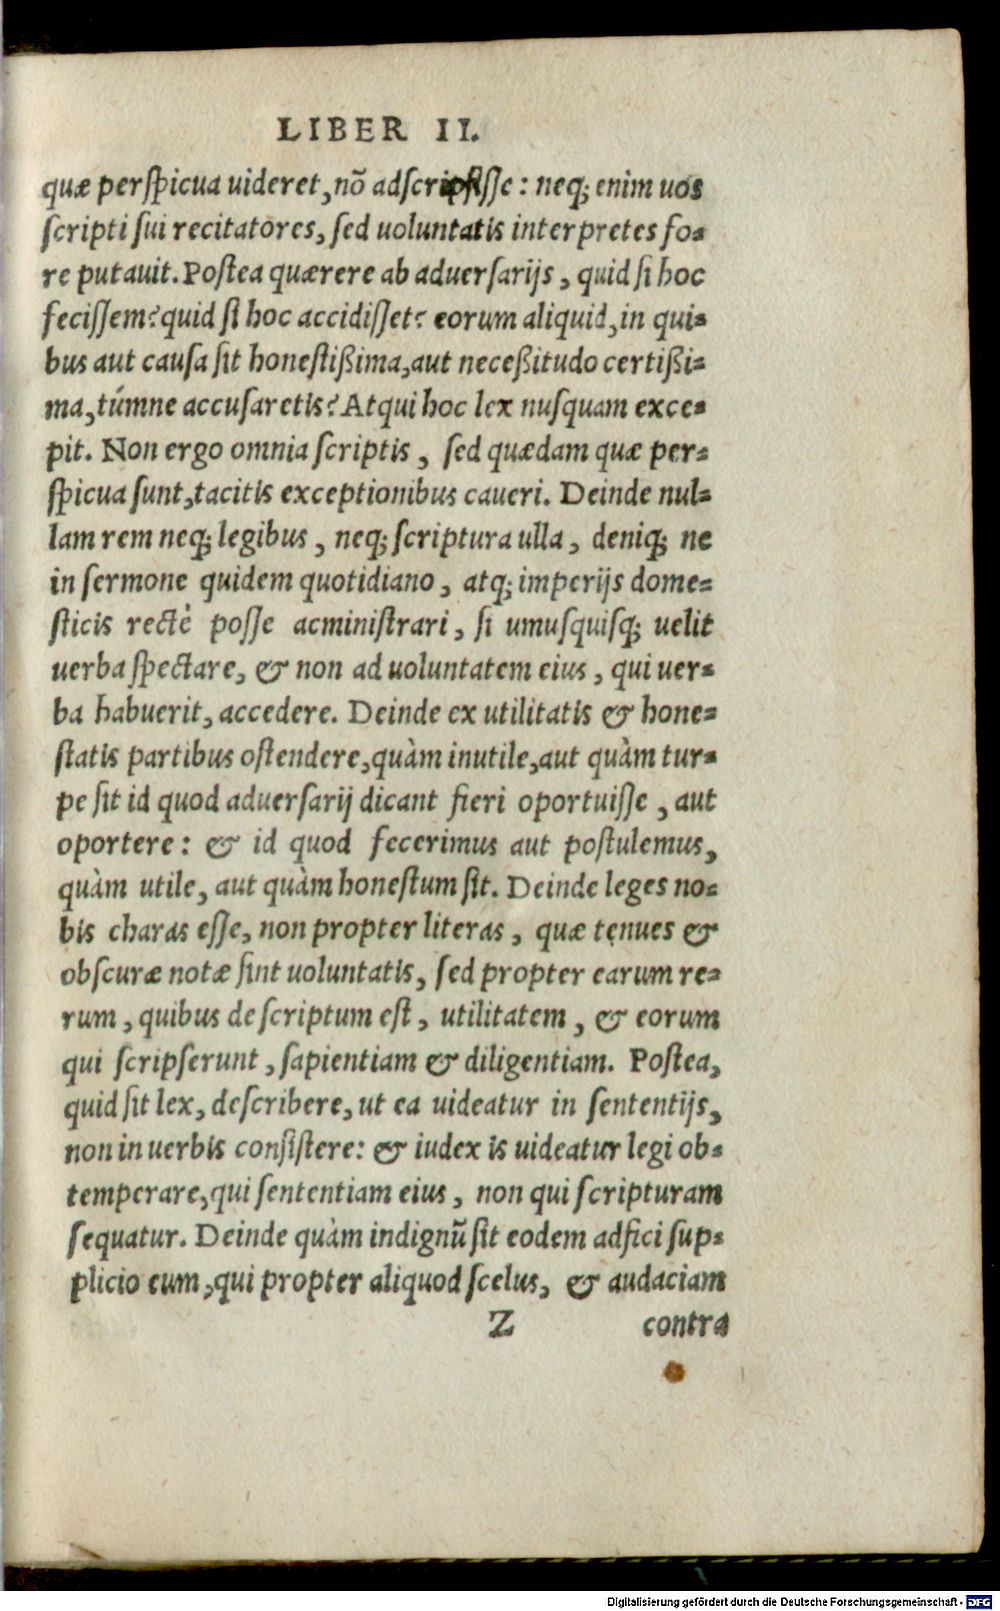 LIBER II.
quæ perspicua uideret, nō adscripsisse: neq; enim uos
scripti sui recitatores, sed uoluntatis interpretes fo-
re putauit. Postea quærere ab aduersarijs, quid si hoc
fecissem? quid si hoc accidisset? eorum aliquid, in qui-
bus aut causa sit honestißima, aut neceßitudo certißi-
ma, túmne accusaretis? Atqui hoc lex nusquam exce-
pit. Non ergo omnia scriptis, sed quædam quæ per-
spicua sunt, tacitis exceptionibus caueri. Deinde nul-
lam rem neq; legibus, neq; scriptura ulla, deniq; ne
in sermone quidem quotidiano, atq; imperijs dome-
sticis rectè posse acministrari, si umusquisq; uelit
uerba spectare, & non ad uoluntatem eius, qui uer-
ba habuerit, accedere. Deinde ex utilitatis & hone-
statis partibus ostendere, quàm inutile, aut quàm tur-
pe sit id quod aduersarij dicant fieri oportuisse, aut
oportere: & id quod fecerimus aut postulemus,
quàm utile, aut quàm honestum sit. Deinde leges no-
bis charas esse, non propter literas, quæ tenues &
obscuræ notæ sint uoluntatis, sed propter earum re-
rum, quibus de scriptum est, utilitatem, & eorum
qui scripserunt, sapientiam & diligentiam. Postea,
quid sit lex, describere, ut ea uideatur in sententijs,
non in uerbis consistere: & iudex is uideatur legi ob-
temperare, qui sententiam eius, non qui scripturam
sequatur. Deinde quàm indignū sit eodem adfici sup-
plicio eum, qui propter aliquod scelus, & audaciam
Z contra
Digitalisierung gefördert durch die Deutsche Forschungsgemeinschaft - DFG